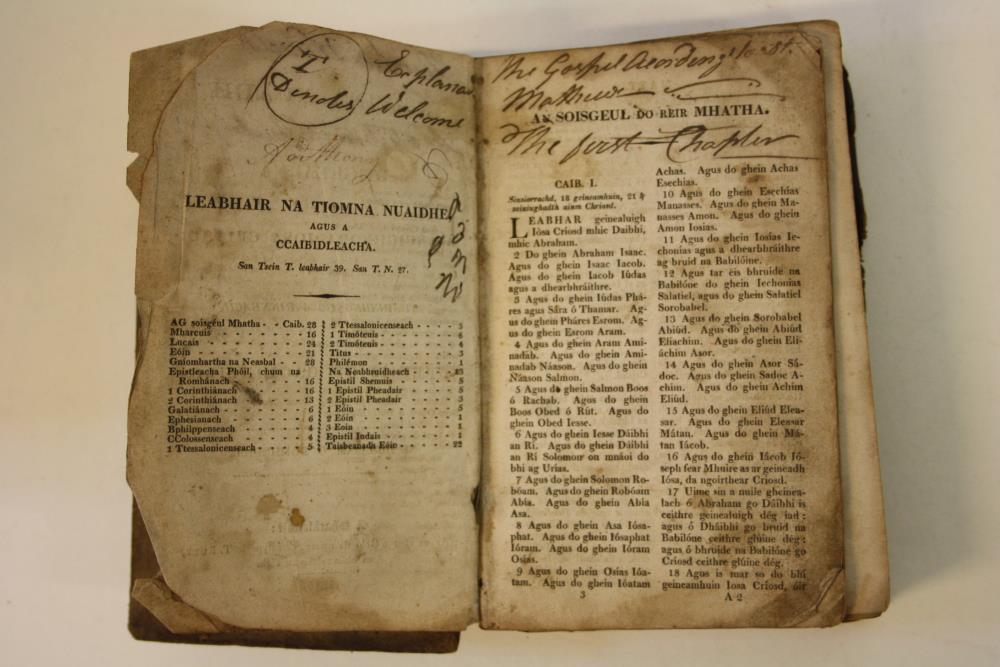 T
Denotes
Explana
Welcome
LEABHAIR NA TIOMNA NUAIDHE
AGUS A
CCAIBIDLEACHA.
San Tsein T. leabhair 39. San T. N. 27.
AG soisgeul Mhatha - - Caib. 28
Mharcuis - 16
Lucais - 24
Eóin - 21
Gníomhartha na Neasbal - - 28
Epistleacha Phóil, chum na
Romhánach - 16
1 Corinthiánach - 16
2 Corinthiánach - 13
Galatiánach - 6
Ephesianach - 6
Bphilppenseach - 4
CColossenseach - 4
1 Ttessalonicenseach - 5
2 Ttessalonicenseach - 3
1 Timóteuis - 6
2 Timóteuis - 4
Titus - 3
Philémon - 1
Na Neabhruidheach - 13
Epistil Shemuis - 5
1 Epistil Pheadair - 5
2 Epistil Pheadair - 3
1 Eóin - 5
2 Eóin - 1
3 Eoin - 1
Epistil Iudais - 1
Taisbeanadh Eóin - 22
The Gospel Acording to St.
Mathew
AN SOISGEUL DO REIR MHATHA.
The first Chapter
CAIB. I.
Siniorrachd, 18 geineamhuin, 21 &
ainm Chriosd.
LEABHAR geinealuigh
Iósa Criosd mhic Daibhi,
mhic Abraham.
2 Do ghein Abraham Isaac.
Agus do ghein Isaac Iacob.
Agus do ghein Iacob Iúdas
agus a dhearbhráithre.
3 Agus do ghein Iúdas Phá-
res agus Sára ó Thamar. Ag-
us do ghein Pháres Esrom. Ag-
us do ghein Esrom Aram.
4 Agus do ghein Aram Ami-
nadáb. Agus do ghein Ami-
nadab Náason. Agus do ghein
Náason Salmon.
5 Agus do ghein Salmon Boos
ó Rachab. Agus do ghein
Boos Obed ó Rút. Agus do
ghein Obed Iesse.
6 Agus do ghein Iesse Dáibhi
an Ri. Agus do ghein Dáibhi
an Rí Solomon ou mnáoi do
bhi ag Urias.
7 Agus do ghein Solomon Ro-
bóam. Agus do ghein Robóam
Abia. Agus do ghein Abia
Asa.
8 Agus do ghein Asa Iósa-
phat. Agus do ghein Iósaphat
Ióram. Agus do ghein Ióram
Osías.
9 Agus do ghein Osías Ióa-
tam. Agus do ghein Ióatam
3
Achas. Agus do ghein Achas
Esechias.
10 Agus do ghein Esechias
Manasses. Agus do ghein Ma-
nasses Amon. Agus do ghein
Amon Iosias.
11 Agus do ghein Iosías Ie-
chonias agus a dhearbhráithre
ag bruid na Babilóine.
12 Agus tar éis bhruide na
Babilóne do ghein Iechonias
Salatiel, agus do ghein Salatiel
Sorobabel.
13 Agus do ghein Sorobabel
Abiúd. Agus do ghein Abiúd
Eliachim. Agus do ghein Eli-
áchim Asor.
14 Agus do ghein Asor Sá-
doc. Agus do ghein Sadoc A-
chim. Agus do ghein Achim
Eliúd.
15 Agus do ghein Eliúd Elea-
sar. Agus do ghein Eleasar
Mátan. Agus do ghein Má-
tan Iácob.
16 Agus do ghein Iácob Ió-
seph fear Mhuire as ar geineadh
Iósa, da ngoirthear Criosd.
17 Uime sin a nuile gheinea-
lach ó Abraham go Dáibhi is
ceithre geinealuigh dég iad;
agus ó Dháibhi go bruid na
Babilóne ceithre glúine dég;
agus ó bhruide na Babilóne go
Criosd ceithre glúine dég.
18 Agus is mar so do bhí
geineamhuin Iosa Criosd, óir
A 2